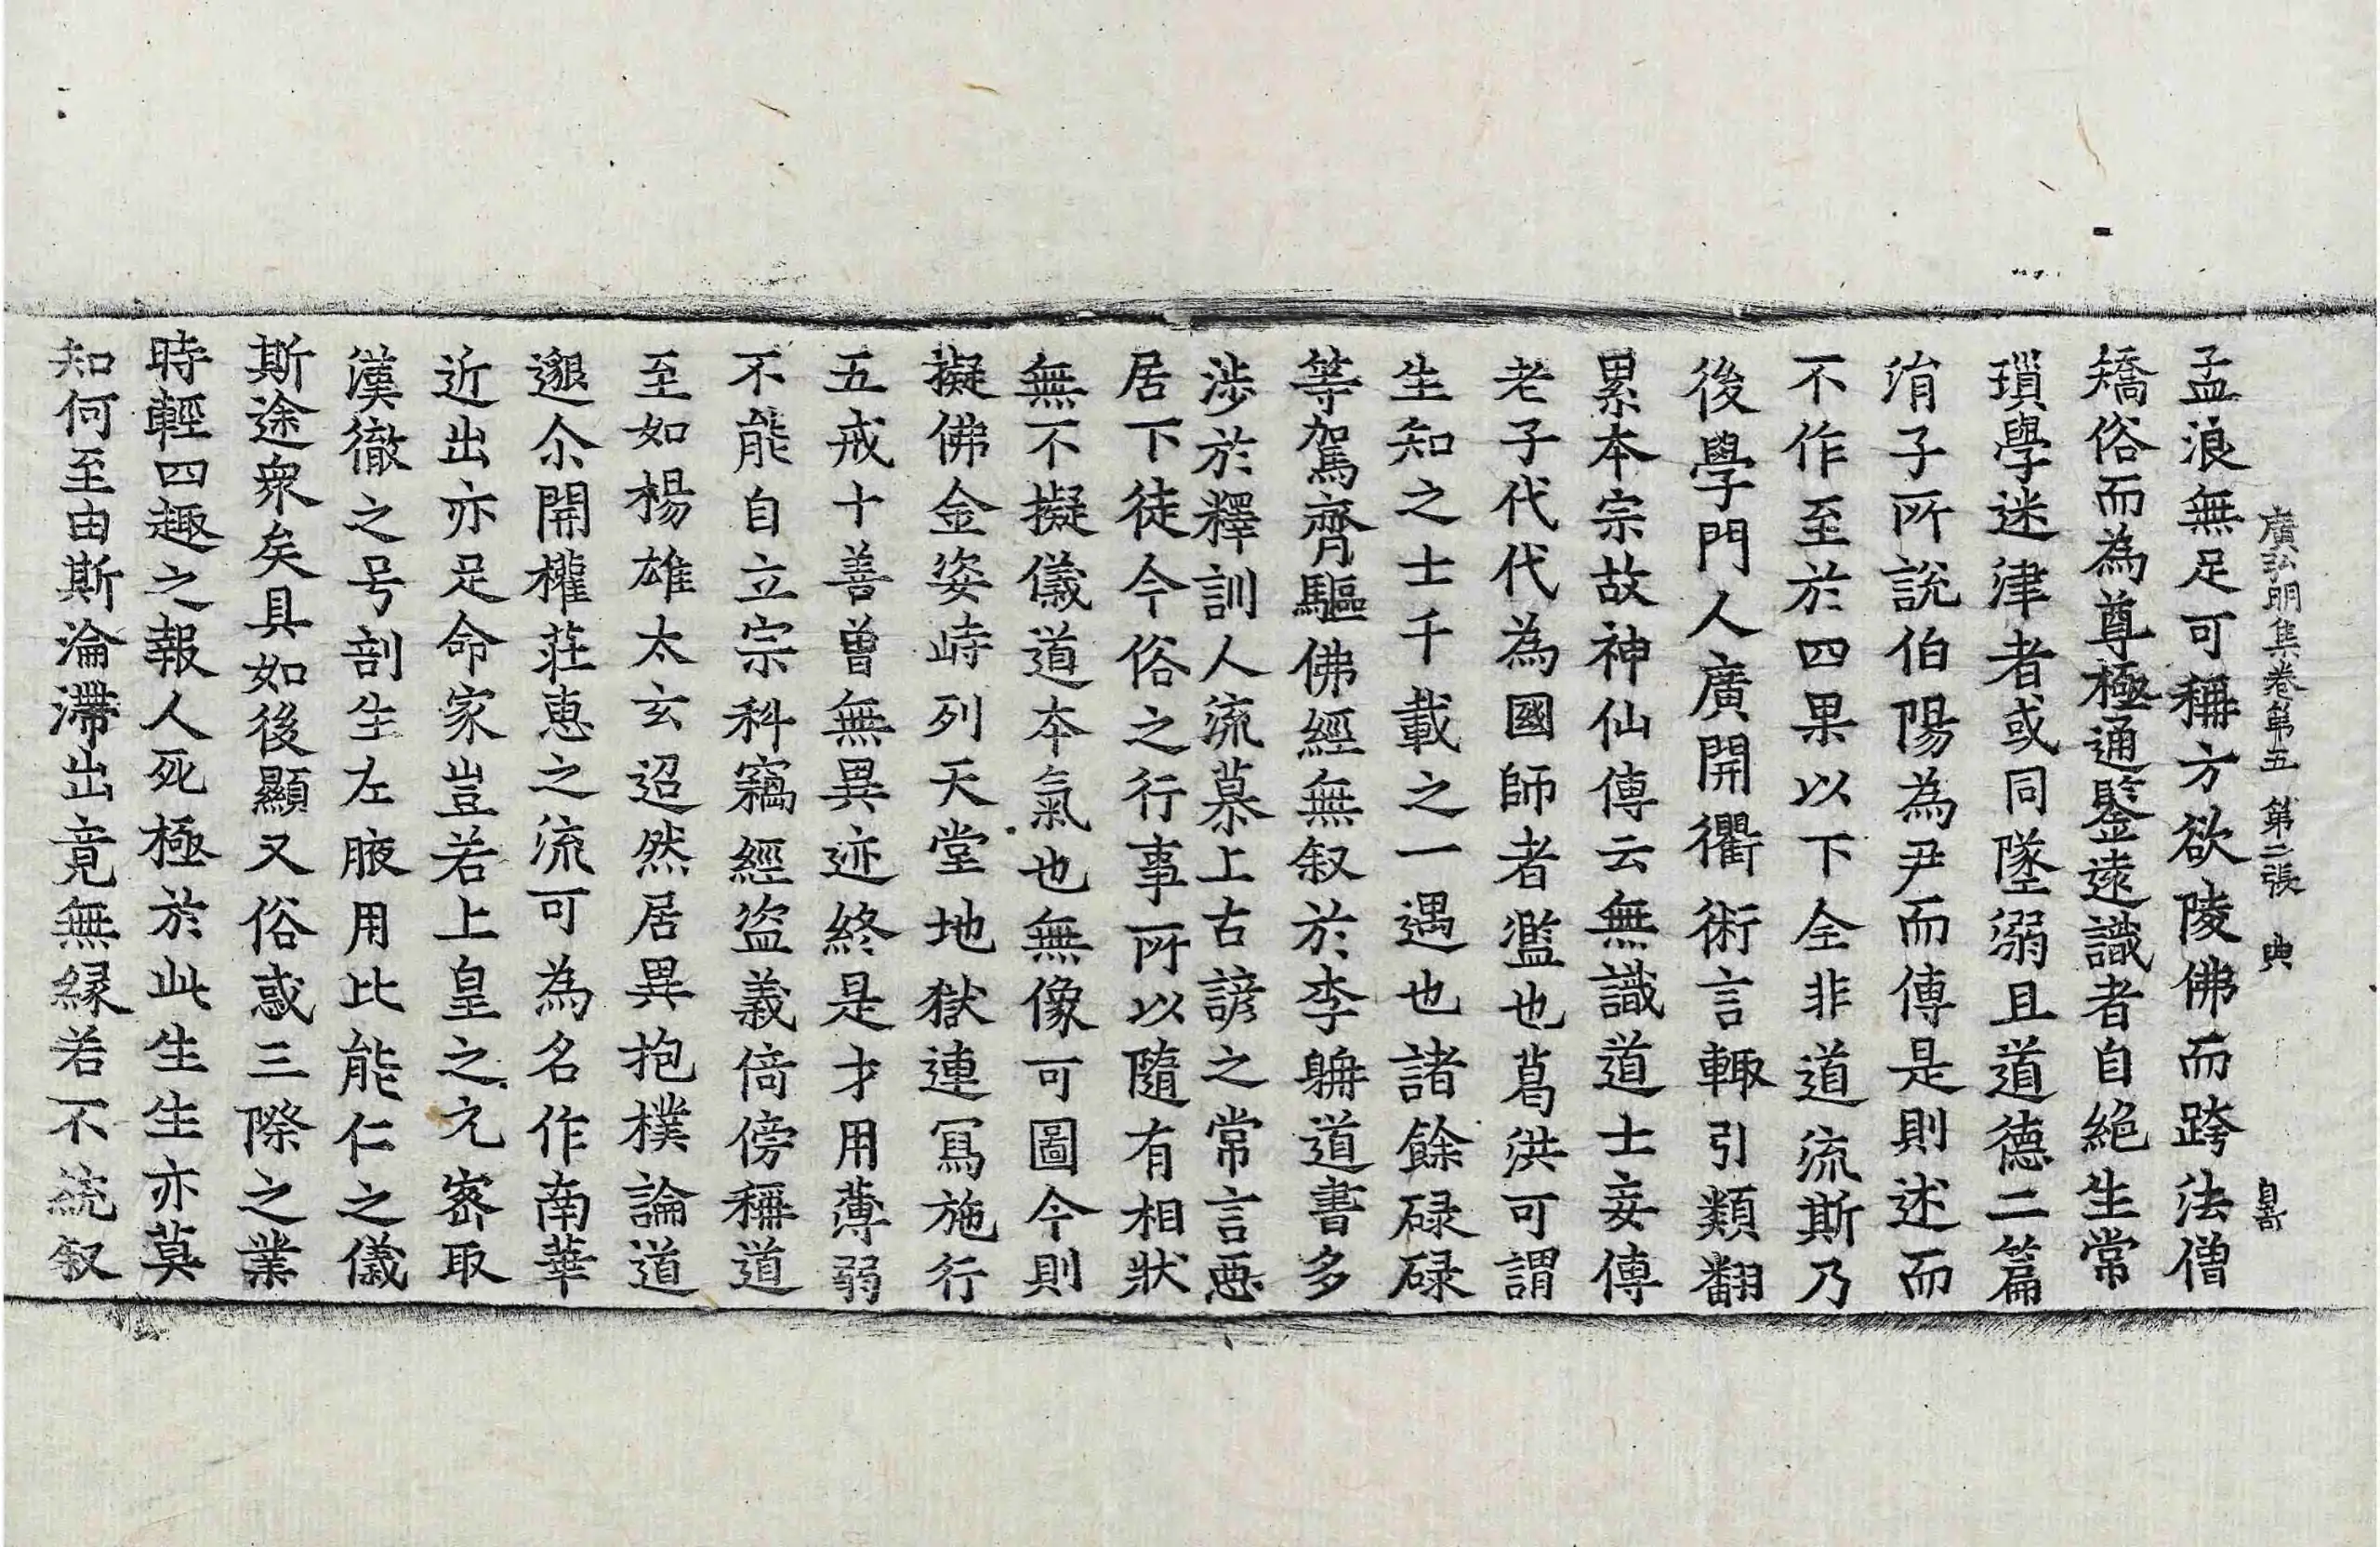 廣弘明集卷第五 第二張 典
孟浪無足可稱方欲陵佛而跨法僧
矯俗而為尊極通鑒遠識者自絕生常
瑣學迷津者或同墜溺且道德二篇
㳙子所說伯陽為尹而傳是則述而
不作至於四果以下全非道流斯乃
後學門人廣開衢術言輙引類翻
累本宗故神仙傳云無識道士妄傳
老子代代為國師者濫也葛洪可謂
生知之士千載之一遇也諸餘碌碌
等駕齊驅佛經無叙於李躭道書多
涉於釋訓人流慕上古諺之常言惡
居下徒今俗之行事所以隨有相狀
無不擬儀道本氣也無像可圖今則
擬佛金姿峙列天堂地獄連寫施行
五戒十善曾無異迹終是才用薄弱
不能自立宗科竊經盜義倚傍稱道
至如楊雄太玄迢然居異抱樸論道
邈尒開權莊惠之流可為名作南華
近出亦足命家豈若上皇之元密取
漢徹之号剖生左腋用比能仁之儀
斯途衆矣具如後顯又俗惑三際之業
時輕四趣之報人死極於此生生亦莫
知何至由斯淪滯出竟無緣若不統叙